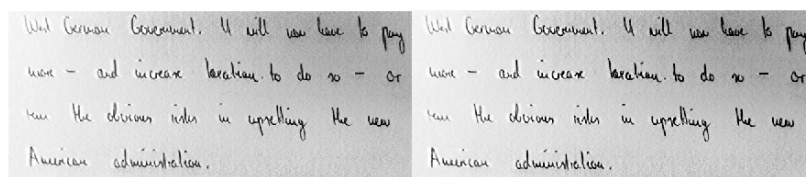 West German Government. It will now have to pay
more - and increase taxation to do so - or
run the obvious risks in upsetting the new
American administration.
West German Government. It will now have to pay
more - and increase taxation to do so - or
run the obvious risks in upsetting the new
American administration.